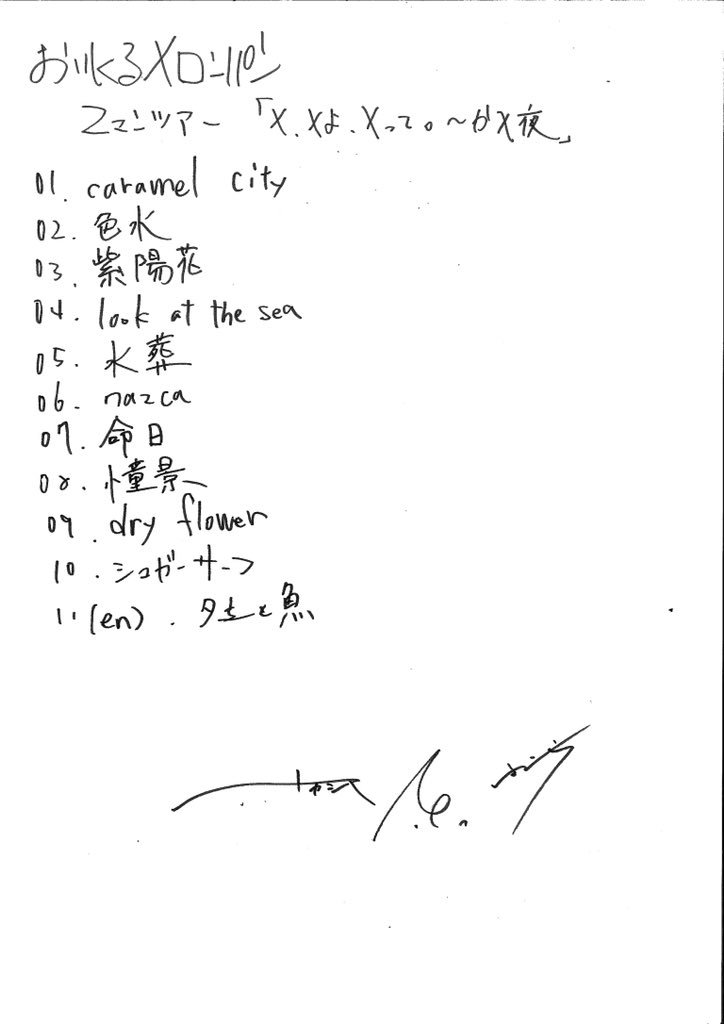 おいしくるメロンパン
2マンツアー「メ、メよ、メって。〜がメ夜」
01. caramel city
02. 色水
03. 紫陽花
04. look at the sea
05. 水葬
06. nazca
07. 命日
08. 憧景
09. dry flower
10. シュガーサーフ
11(en). 夕立と魚